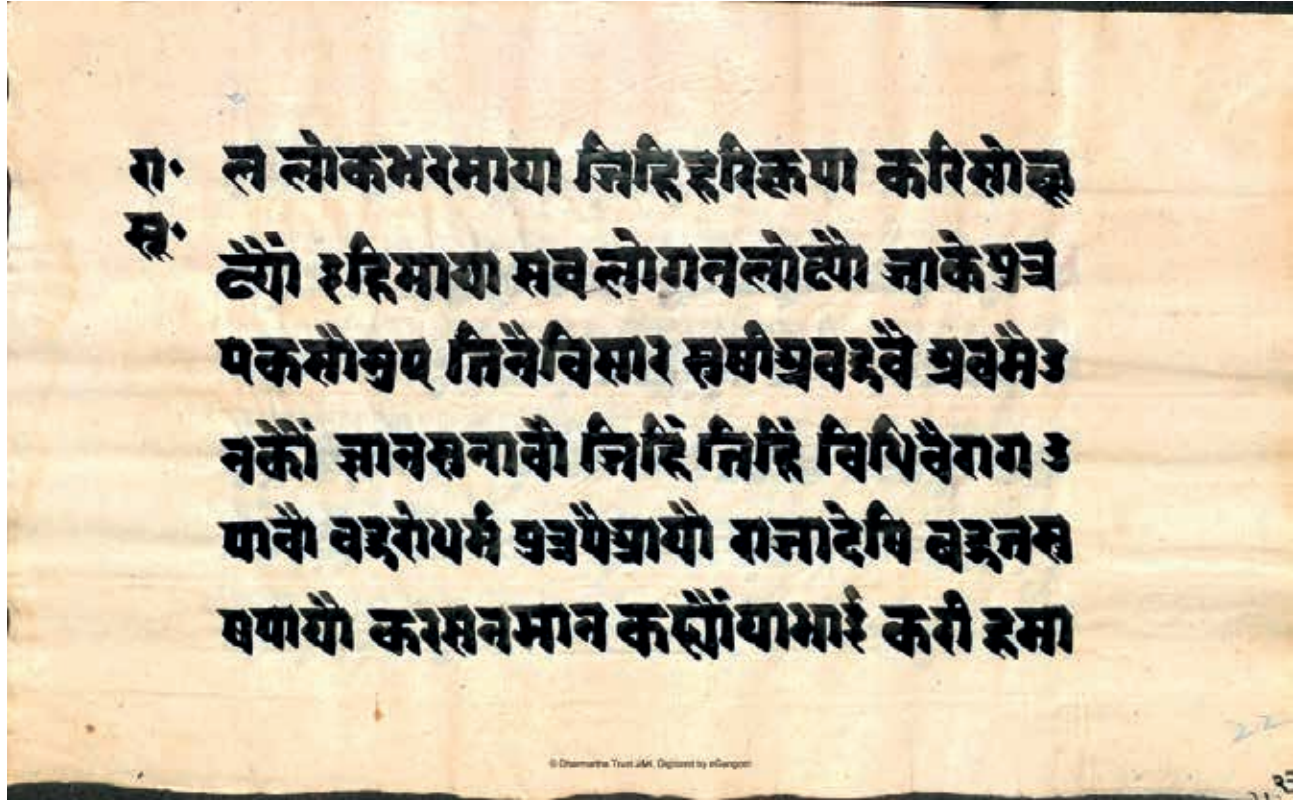 रा॰ ल लोकभरमाया जिहिहरिकृपा करिसोछू
सू॰
ट्यौं इहिमाया सब लोगनलोट्यौ जाकेपुत्र
एकसौभुए तिनैविसार सूषीश्रवहूवै श्रवमैउ
नकौं ज्ञानसनावौ जिहिं तिहिं विधिवैराग उ
पावौ वहुरोधर्म पुत्रपैश्रायौ राजादेषि बहूतसू
षपायौ करसनमान कह्यौंयाभाई करी हमा
© Dharmartha Trust J&K. Digitized by eGangotri
22